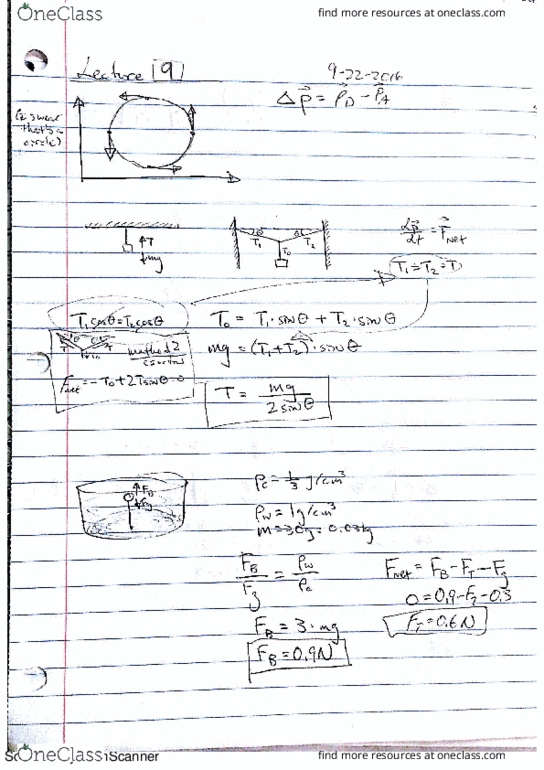 OneClass find more resources at oneclass.com
Lecture [9] 9-22-2016
Δp⃗ = p⃗_D - p⃗_A
(I swear that's a circle)
T
mg
θ θ
T₁ T₂
T₀
dp⃗/dt = F⃗_Net
T₁ = T₂ = T
T₁cosθ = T₂cosθ
T₀ = T₁·sinθ + T₂·sinθ
mg = (T₁+T₂)·sinθ
method 2
F_net = -T₀ + 2Tsinθ = 0
T = mg / 2sinθ
F_B
F_g
ρ_c = 1/3 g/cm³
ρ_w = 1g/cm³
m = 30g = 0.03kg
F_B/F_g = ρ_w/ρ_c
F_net = F_B - F_T - F_g
0 = 0.9 - F_T - 0.3
F_T = 0.6N
F_B = 3·mg
F_B = 0.9N
OneClass Scanner find more resources at oneclass.com